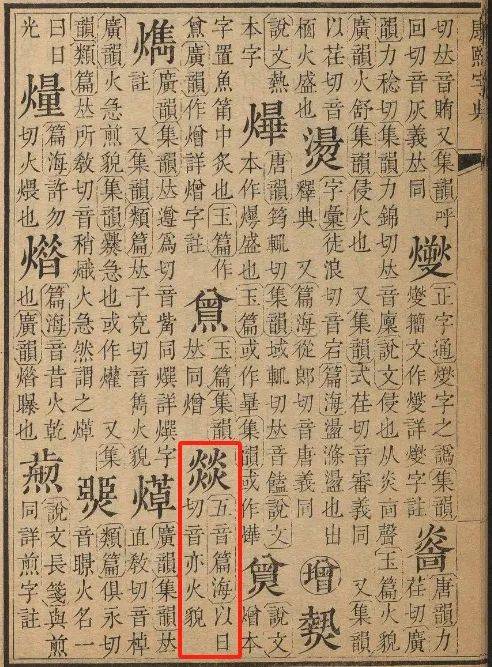 康熙字典
切𠀤音賄又集韻呼
回切音灰義𠀤同
正字通燮字之譌集韻
燮籀文作燮詳燮字註
唐韻力
荏切廣
韻力稔切集韻力錦切𠀤音廩說文侵也从炎㐭聲玉篇火貌 又集
韻火舒切集韻侵火也 又集韻式荏切音審義同 又集韻
以荏切音
火盛也
燙
字彙徒浪切音宕篇海盪滌也出
釋典 又篇海從郞切音唐義同
增
說文熱
本字
燁
唐韻筠輒切集韻域輒切𠀤音饁說文
本作爗盛也玉篇或作曅集韻或作
說文
熷本
字置魚筩中炙也玉篇作
廣韻作熷詳熷字註
玉篇集韻
𠀤同熷
燚
五音篇海以日
切音亦火貌
廣韻集韻𠀤遵爲切音觜同 詳 字
註 又集韻類篇𠀤子兗切音雋火貌
廣韻集韻𠀤
直敎切音棹
廣韻火急煎貌集韻爆急也或作爟 又集
韻類篇𠀤所敎切音稍熾火急然謂之
類篇俱永切
音 火名一
曰日
光
篇海許勿
切火煨也
篇海音昔火乾
也廣韻 曝也
說文長箋與煎
同詳煎字註